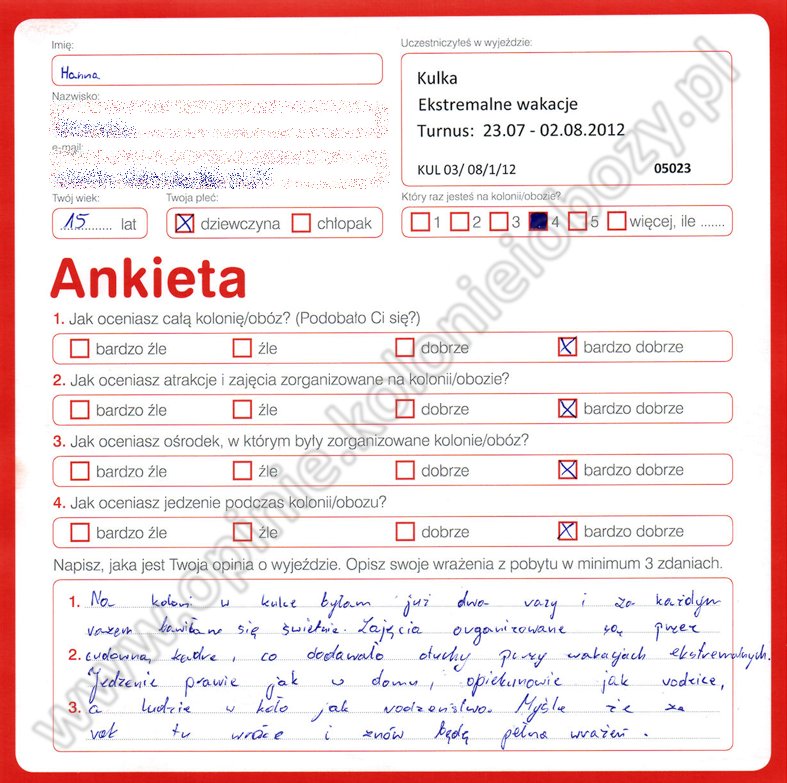 Imię:
Hanna
Nazwisko:
e-mail:
Twój wiek:
15 lat
Twoja płeć:
dziewczyna chłopak
Uczestniczyłeś w wyjeździe:
Kulka
Ekstremalne wakacje
Turnus: 23.07 - 02.08.2012
KUL 03/ 08/1/12 05023
Który raz jesteś na kolonii/obozie?
1 2 3 4 5 więcej, ile .......
Ankieta
1. Jak oceniasz całą kolonię/obóz? (Podobało Ci się?)
bardzo źle źle dobrze bardzo dobrze
2. Jak oceniasz atrakcje i zajęcia zorganizowane na kolonii/obozie?
bardzo źle źle dobrze bardzo dobrze
3. Jak oceniasz ośrodek, w którym były zorganizowane kolonie/obóz?
bardzo źle źle dobrze bardzo dobrze
4. Jak oceniasz jedzenie podczas kolonii/obozu?
bardzo źle źle dobrze bardzo dobrze
Napisz, jaka jest Twoja opinia o wyjeździe. Opisz swoje wrażenia z pobytu w minimum 3 zdaniach.
1. Na koloni w kulce byłam już dwa razy i za każdym
razem bawiłam się świetnie. Zajęcia organizowane są przez
2. cudowną kadrę, co dodawało otuchy przy wakacjach ekstremalnych.
Jedzenie prawie jak w domu, opiekunowie jak rodzice,
3. a ludzie w koło jak rodzeństwo. Myślę że za
rok tu wrócę i znów będę pełna wrażeń.
www.opinie.kolonieiobozy.pl